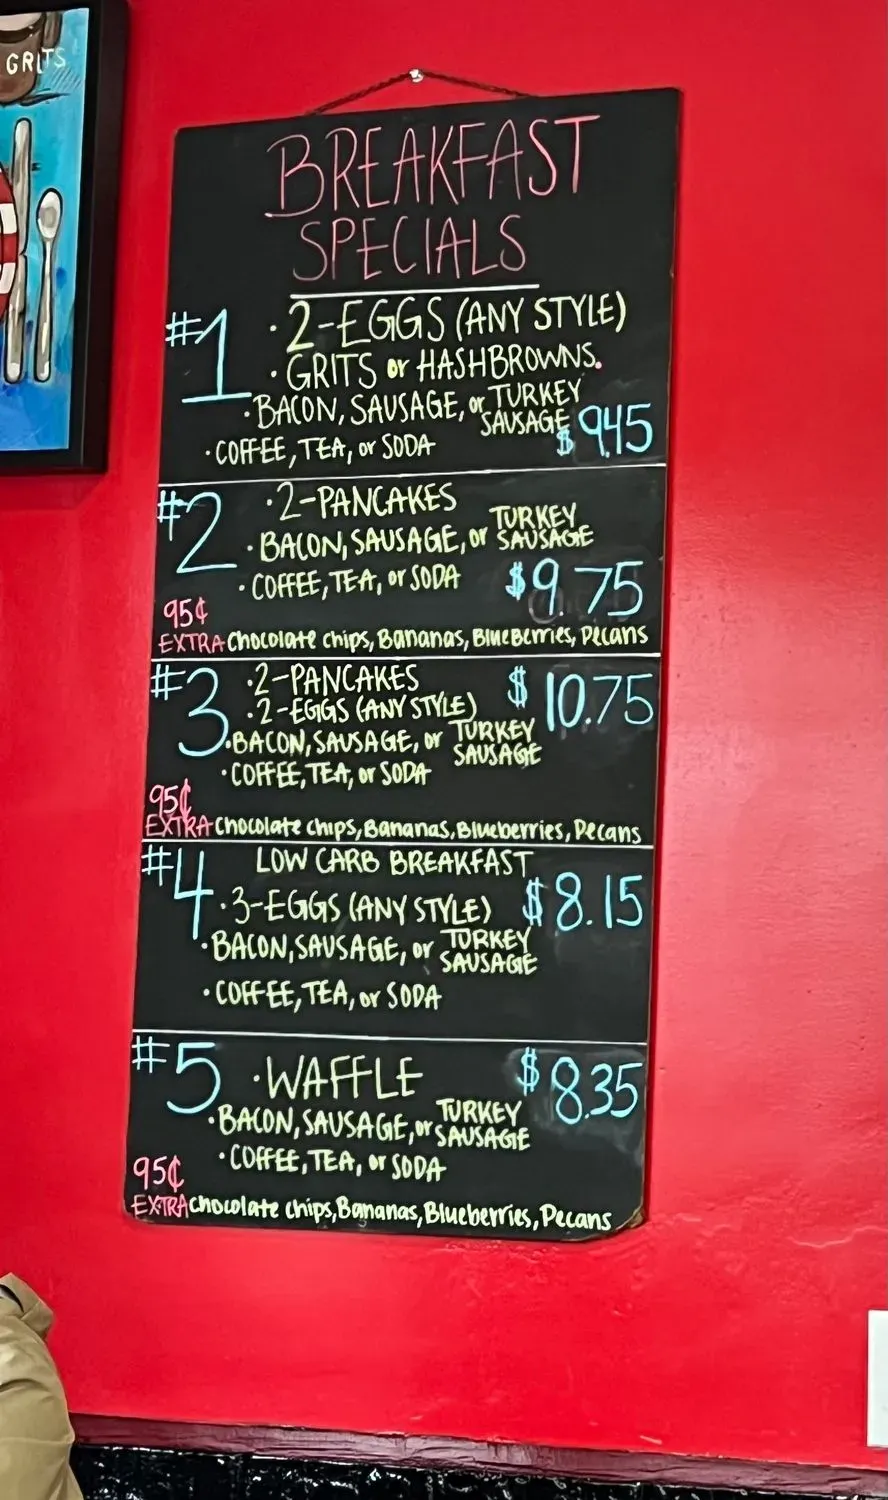 GRITS
BREAKFAST
SPECIALS
#1 · 2-EGGS (ANY STYLE)
· GRITS or HASHBROWNS.
· BACON, SAUSAGE, or TURKEY SAUSAGE
$9.45
· COFFEE, TEA, or SODA
#2 · 2-PANCAKES
· BACON, SAUSAGE, or TURKEY SAUSAGE
· COFFEE, TEA, or SODA $9.75
95¢
EXTRA Chocolate chips, Bananas, Blueberries, Pecans
#3 · 2-PANCAKES $10.75
· 2-EGGS (ANY STYLE)
· BACON, SAUSAGE, or TURKEY SAUSAGE
· COFFEE, TEA, or SODA
95¢
EXTRA Chocolate chips, Bananas, Blueberries, Pecans
#4 LOW CARB BREAKFAST
· 3-EGGS (ANY STYLE) $8.15
· BACON, SAUSAGE, or TURKEY SAUSAGE
· COFFEE, TEA, or SODA
#5 · WAFFLE $8.35
· BACON, SAUSAGE, or TURKEY SAUSAGE
· COFFEE, TEA, or SODA
95¢
EXTRA Chocolate chips, Bananas, Blueberries, Pecans